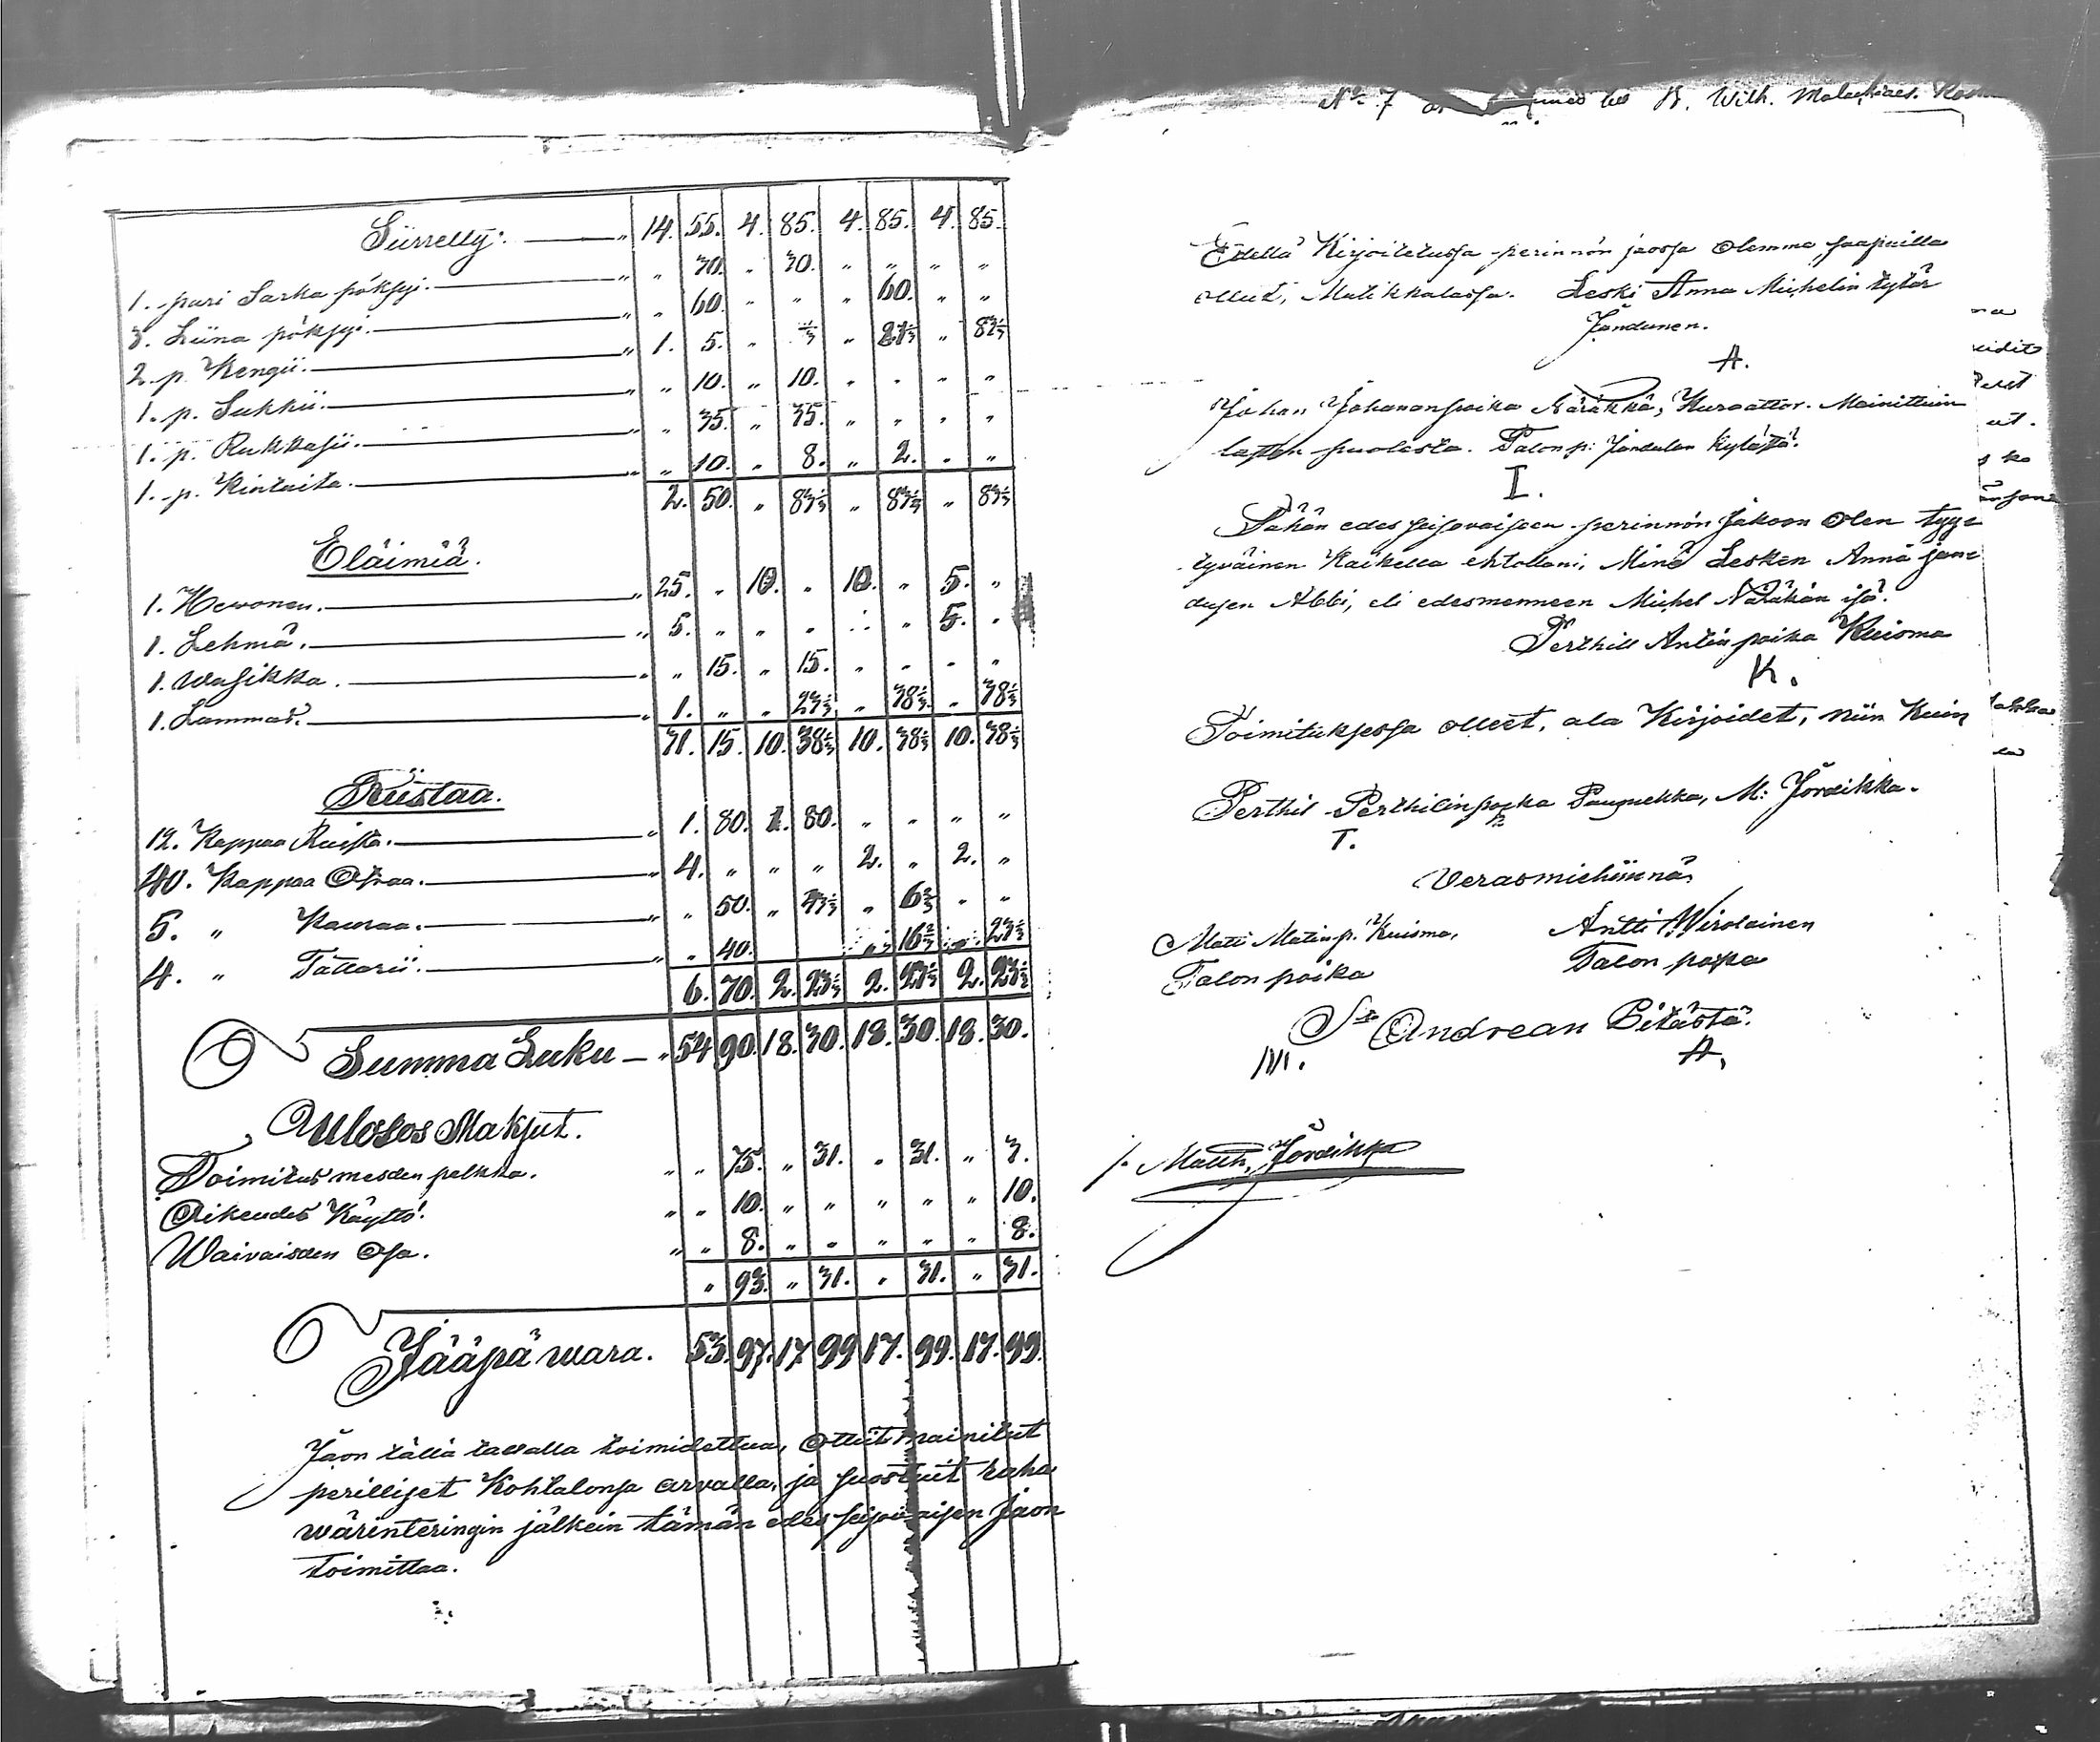 Siirretty: " 14. 55. 4. 85. 4. 85. 4. 85.
1. pari Sarka pöksyi. " " 30. " 30. " " " "
3. Liina pöksyi. " " 60. " " " 60. " "
2. p. Kengii. " 1. 5. "
1. p. Sukkii. " " 10. " 10. " " " "
1. p. Rukkasii. " " 35. " 35. " " " "
1. p. Kintaita. " " 10. " 8. " 2. " "
2. 50. " 83⅓ " 83⅓ " 83⅓
Eläimiä.
1. Hewonen. " 25. " 10. " 10. " 5. "
1. Lehmä. " 5. " " " " " 5. "
1. Wasikka. " " 15. " 15. " " " "
1. Lammas. " 1. " " 23⅓ " 38⅓ " 38⅓
31. 15. 10. 38⅓ 10. 38⅓ 10. 38⅓
Riistaa.
12. Kappaa Ruista. " 1. 80. 1. 80. " " " "
40. Kappaa Ohraa. " 4. " " " 2. " 2. "
5. " Kauraa. " " 50. " 43⅓ " 6⅔ " "
4. " Tattarii. " " 40. " 16⅔ " 23⅓
6. 70. 2. 23⅓ 2. 23⅓ 2. 23⅓
Summa Luku " 54 90. 18. 30. 18. 30. 18. 30.
Ulosos Maksut.
Toimitus mesden palkka. " " 75. " 31. " 31. " 3.
Oikeudes Käyttö. " " 10. " " " " " 10.
Waivaisden Osa. " " 8. " " " " " 8.
" 93. " 31. " 31. " 31.
Jääpä wara. 53. 97. 17. 99 17. 99. 17. 99.
Jaon tällä tawalla toimidettua, Ottiit mainitut
perilliset Kohtalonsa arvalla, ja suostuit raha
wärinteringin jälkein tämän edes seisovaisen Jaon
toimittaa.
No 7 B. Wilh. Malachiaes.
Edellä Kirjoitetussa perinnön jaossa Olemma saapuilla
ollut, Matikkalassa. Leski Anna Michelin tytär
Jandunen.
A.
Johan Johananpoika Näräkkä, Kuraattor. Mainittuin
lasten puolesta. Talon p: Jandulan Kylästä.
I.
Tähän edes seisovaiseen perinnön Jakoon Olen tyy-
tyväinen Kaikella ehtollani, Minä Lesken Anna jan-
dusen Abbi, eli edesmenneen Michel Näräkän isä.
Perthill Antin poika Kuisma
K.
Toimituksessa olleet, ala Kirjoidet, niin Kuin
Perthil Perthilinpoika Paugnekka, M: Jöväikka.
T.
Verasmiehinnä
Matti Matinp. Kuisma, Antti Wirolainen
Talon poika Talon poika
St Andrean Pitästä.
M. A.
/. Matth. Jöväikka